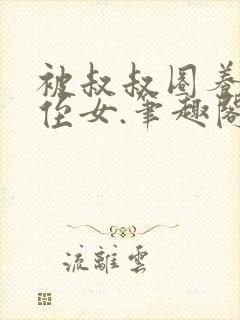 被叔叔圈养
侄女.笔趣阁
流離雲